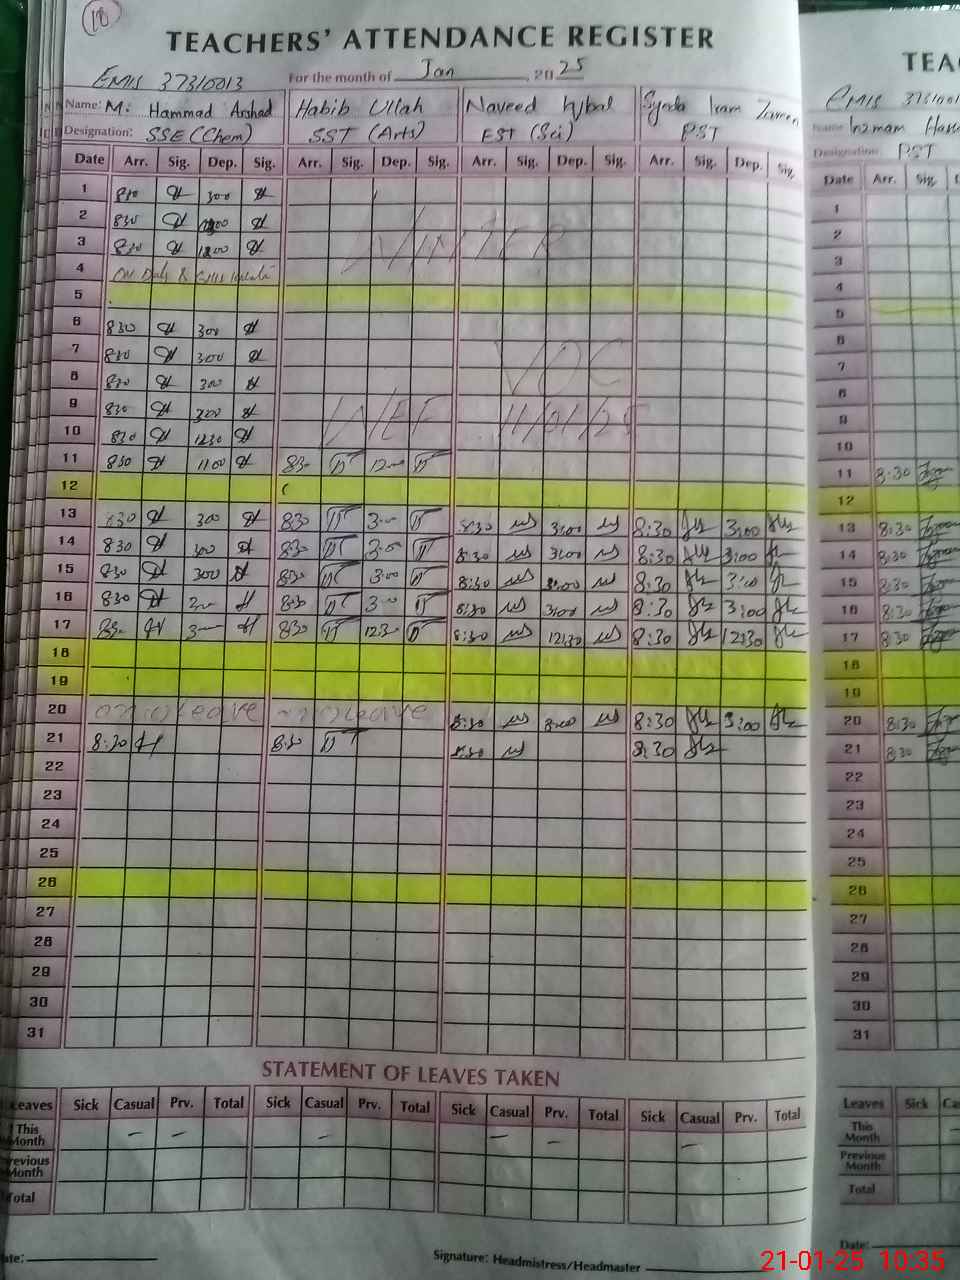 18
TEACHERS' ATTENDANCE REGISTER
EMIS 37310013 For the month of Jan, 2025
Name: M. Hammad Arshad Habib Ullah Naveed Iqbal Syeda Iram
Designation: SSE (Chem) SST (Arts) EST (Sci) PST
Date Arr. Sig. Dep. Sig. Arr. Sig. Dep. Sig. Arr. Sig. Dep. Sig. Arr. Sig. Dep. Sig.
1 830 300
2 830
3 830 1200 WINTER
4 On Duty
5
6 830 300
7 830 300 VAC
8 830 300
9 830 300 WEF 11/01/25
10 830 1230
11 830 1100 830 1200
12
13 830 300 830 300 8:30 3:00 8:30 3:00
14 830 300 830 300 8:30 3:00 8:30 3:00
15 830 300 830 300 8:30 3:00 8:30 3:00
16 830 300 830 300 8:30 3:00 8:30 3:00
17 830 300 830 1230 8:30 12:30 8:30 12:30
18
19
20 on Leave Leave 8:30 3:00 8:30 3:00
21 8:30 830 8:30 8:30
22
23
24
25
26
27
28
29
30
31
STATEMENT OF LEAVES TAKEN
Leaves Sick Casual Prv. Total Sick Casual Prv. Total Sick Casual Prv. Total Sick Casual Prv. Total
This Month – – – – – –
Previous Month
Total
Date:
Signature: Headmistress/Headmaster
TEA
EMIS
Name
Designation: PST
Date Arr. Sig.
1
2
3
4
5
6
7
8
9
10
11 8:30
12
13 8:30
14 8:30
15 8:30
16 8:30
17 8:30
18
19
20 8:30
21 8:30
22
23
24
25
26
27
28
29
30
31
Leaves Sick Ca
This Month
Previous Month
Total
Date:
21-01-25 10:35